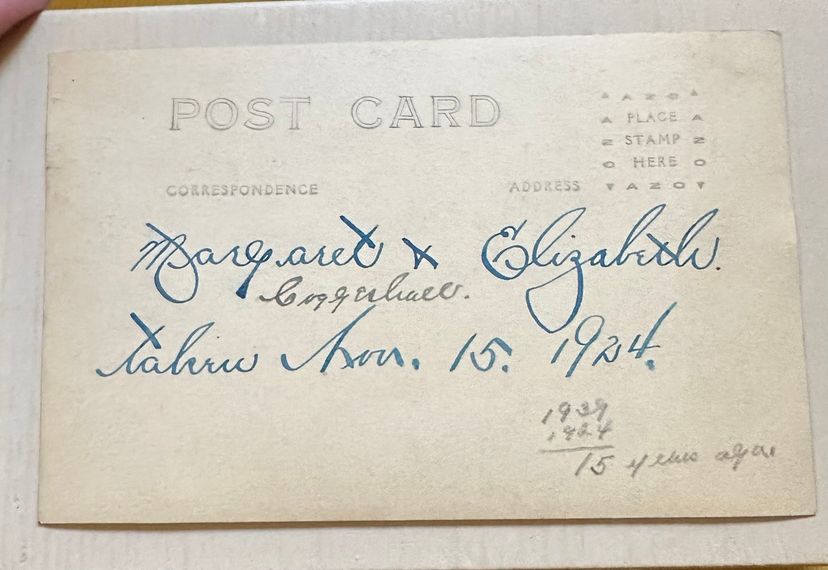 POST CARD
▲ AZO ▲
A PLACE A
Z STAMP Z
O HERE O
▼ AZO ▼
CORRESPONDENCE
ADDRESS
Margaret & Elizabeth.
Coggeshall.
taken Nov. 15. 1924.
1939
1924
15 years ago.